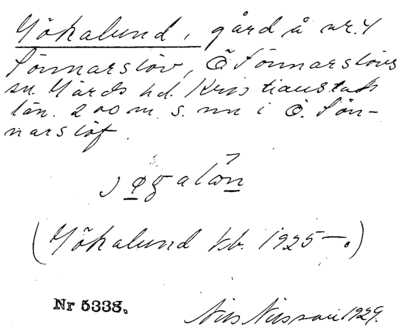 Gökalund, gård å nr. 4
Sönnarslöv, Ö Sönnarslövs
sn. Gärds hd. Kristianstads
län. 200 m. s. om i Ö. Sön-
narslöf.
(Gökalund kb. 1925–.)
Nr 5338.
Nils Nilsson 1929.